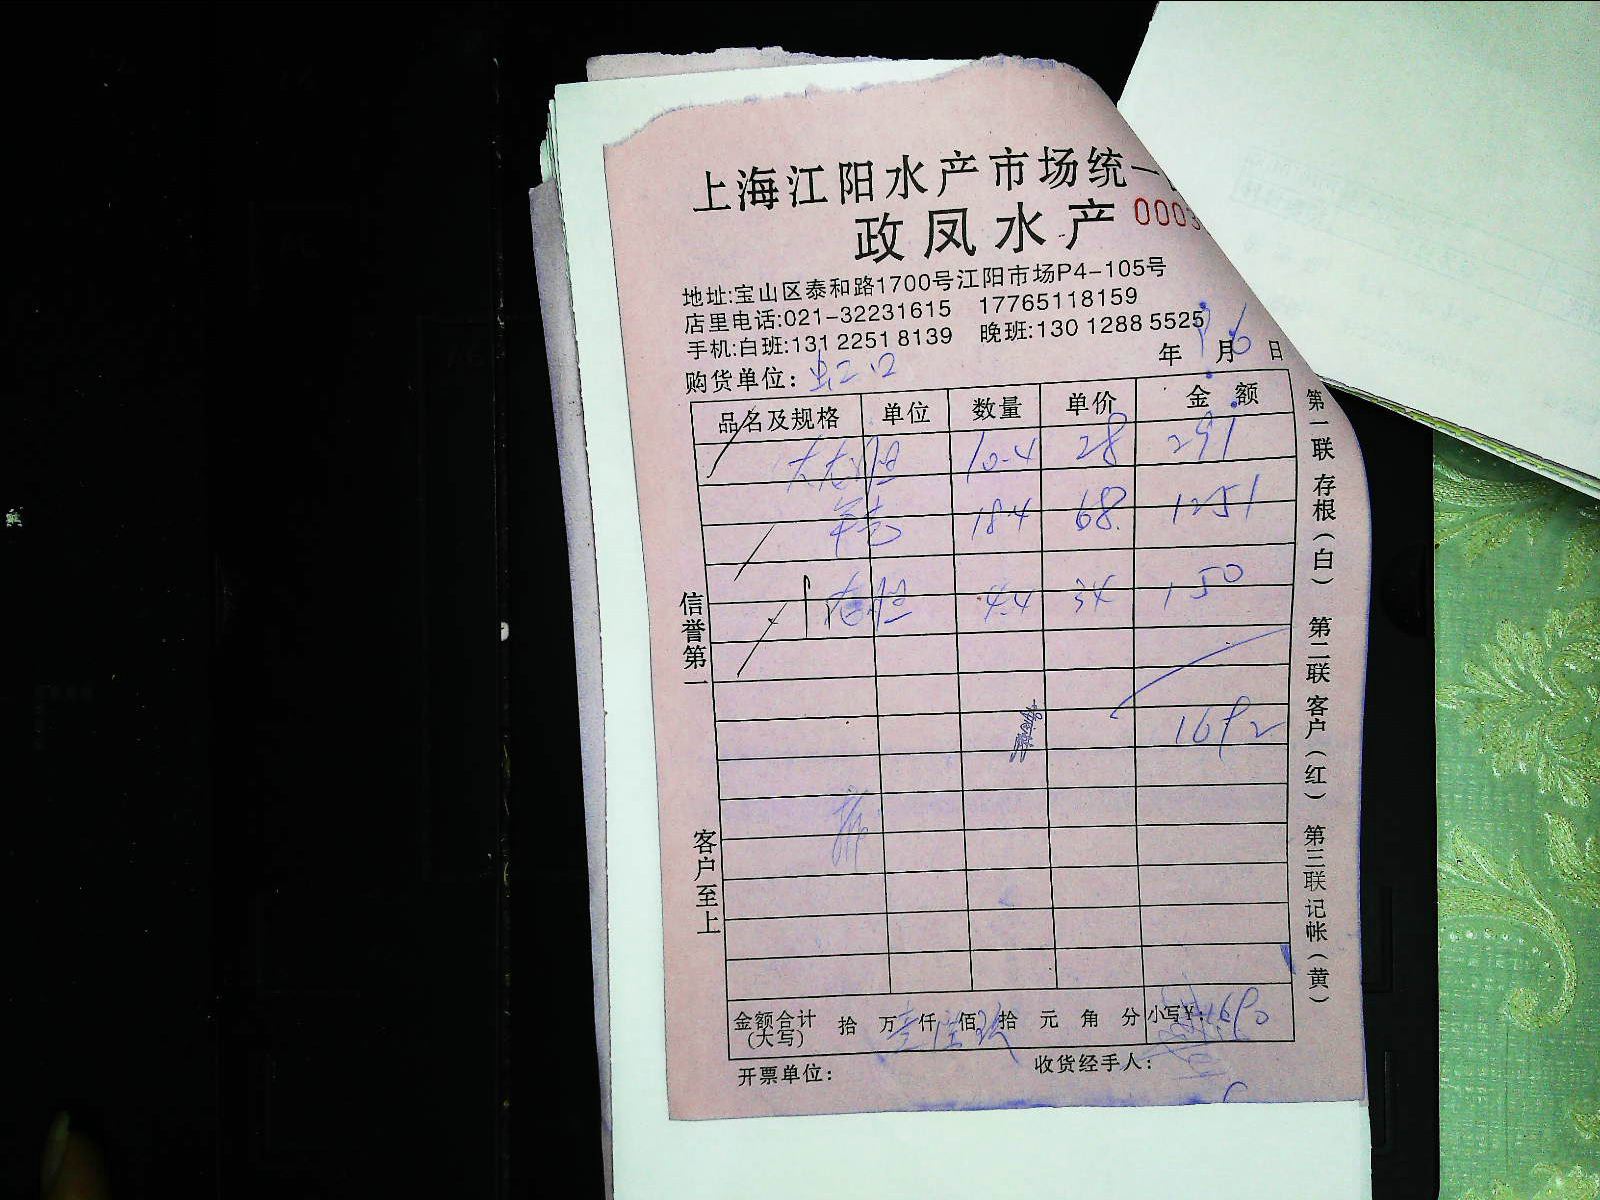 上海江阳水产市场统一
政凤水产 0003
地址:宝山区泰和路1700号江阳市场P4-105号
店里电话:021-32231615 17765118159
手机:白班:131 2251 8139 晚班:130 1288 5525
年 9月6日
购货单位: 虹口
品名及规格 单位 数量 单价 金额
10.4 28 291
18.4 68 1251
4.4 34 150
1692
信誉第一
客户至上
金额合计(大写) 拾 万 仟 佰 拾 元 角 分 小写¥: 1690
开票单位: 收货经手人:
第一联 存根(白) 第二联 客户(红) 第三联 记帐(黄)